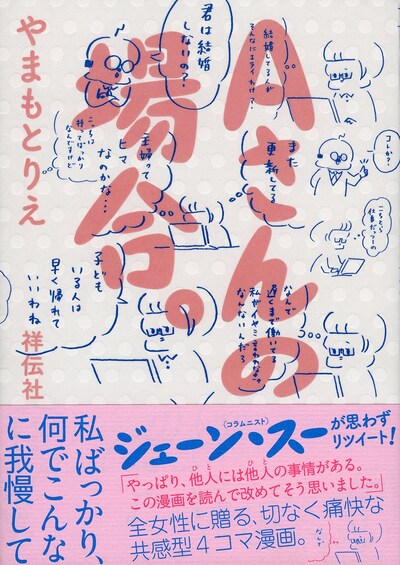 Aさんの
場合。
やまもとりえ
祥伝社
結婚してる人が
そんなにエライわけ？
君は結婚
しないの？
こっちは
待ってばっかり
なんですけど
主婦って
ヒマ
なのかな…
また
更新してる
コレか？
こちとら
仕事だっつーの
子ども
いる人は
早く帰れて
いいわね
なんで
遅くまで働いてる
私がイヤミ言われなきゃ
なんないんだろ
私ばっかり、
何でこんな
に我慢して
（コラムニスト）
ジェーン・スーが思わず
リツイート！
「やっぱり、他人には他人の事情がある。
この漫画を読んで改めてそう思いました。」
ひと
ひと
全女性に贈る、切なく痛快な
共感型4コマ漫画。